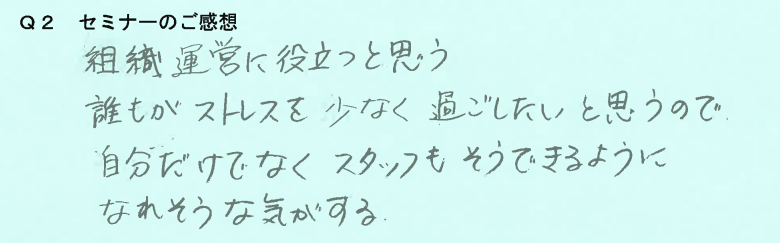 Q2 セミナーのご感想
組織運営に役立つと思う
誰もがストレスを少なく過ごしたいと思うので
自分だけでなくスタッフもそうできるように
なれそうな気がする.